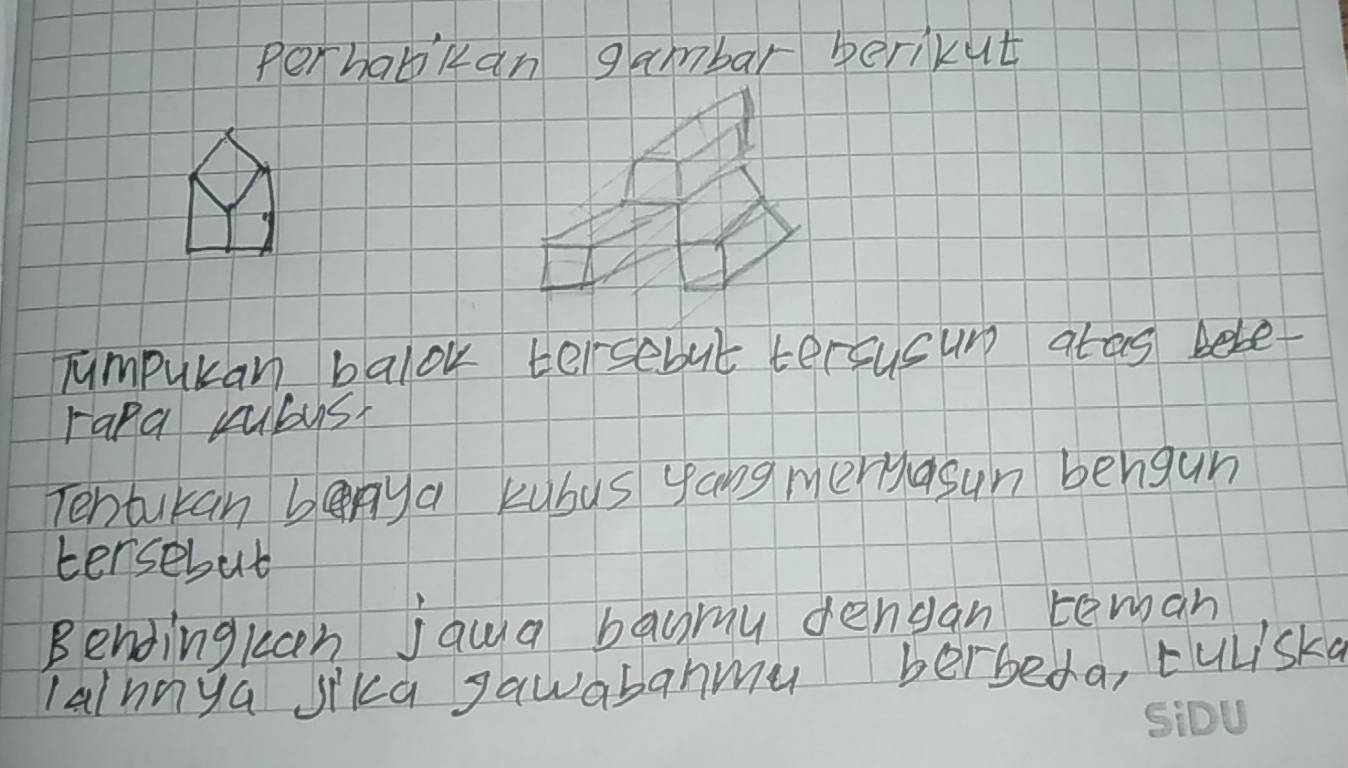 Perhatikan gambar berikut
Tumpukan balok tersebut tersusun atas bebe-
rapa kubus.
Tentukan banya kubus yang menyasun bengun
tersebut
Bendingkan jawa banmu dengan teman
lainnya jika gawabanmu berbeda, tuliska
SiDU